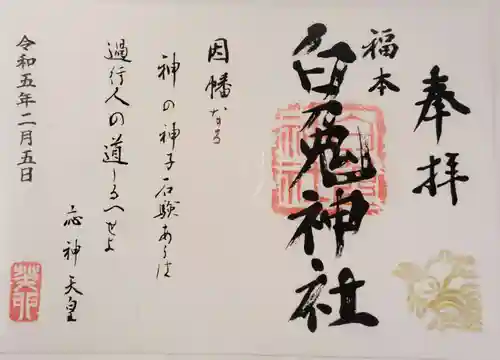 奉拝
福本
白兎神社
因幡なる
神の神子石験あらは
過行人の道しるへせよ
応神天皇
令和五年二月五日
癸卯